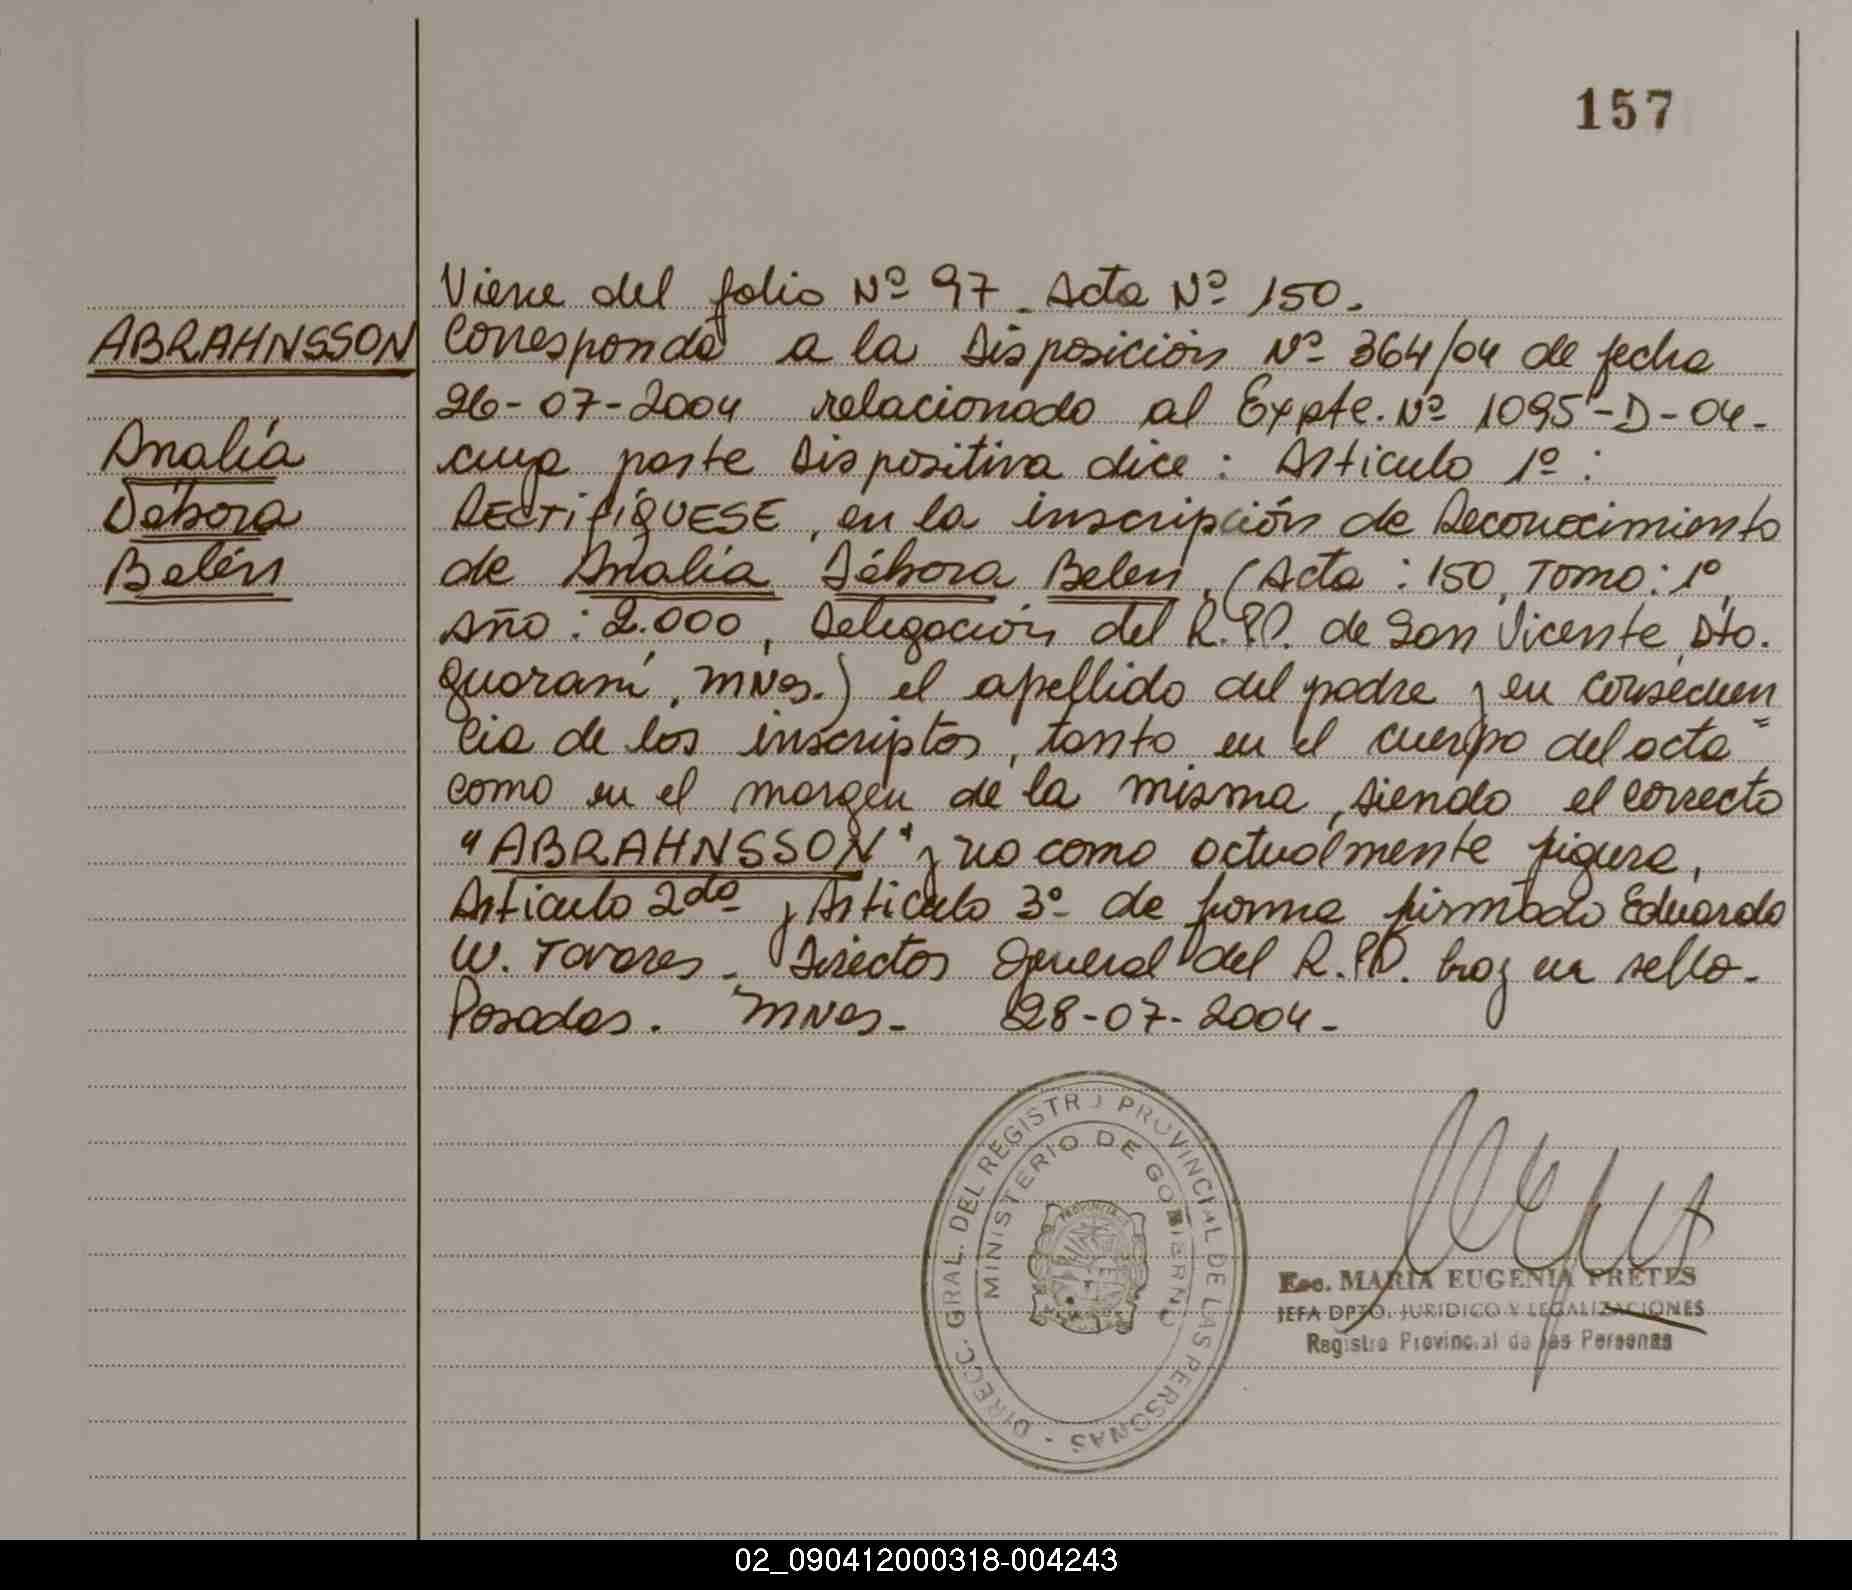 157
Viene del folio Nº 97. Acta Nº 150.
ABRAHNSSON
Corresponde a la Disposición Nº 364/04 de fecha
26-07-2004 relacionado al Expte. Nº 1095-D-04-
Analía
cuya parte Dispositiva dice: Artículo 1º:
Débora
RECTIFÍQUESE, en la inscripción de Reconocimiento
Belén
de Analía Débora Belen, (Acta: 150, Tomo: 1º,
Año: 2.000, Delegación del R.P.P. de San Vicente, Dto.
Guaraní, Mnes.) el apellido del padre y en consecuen
cia de los inscriptos, tanto en el cuerpo del acta
como en el margen de la misma, siendo el correcto
"ABRAHNSSON" y no como actualmente figura,
Artículo 2do y Artículo 3º de forma firmado Eduardo
W. Tavares. Director General del R.P.P. hay un sello.
Posadas. Mnes. 28-07-2004.
DIRECC. GRAL. DEL REGISTRO PROVINCIAL DE LAS PERSONAS -
MINISTERIO DE GOBIERNO
PROVINCIA
Esc. MARIA EUGENIA PRETES
JEFA DPTO. JURIDICO Y LEGALIZACIONES
Registro Provincial de las Personas
02_090412000318-004243